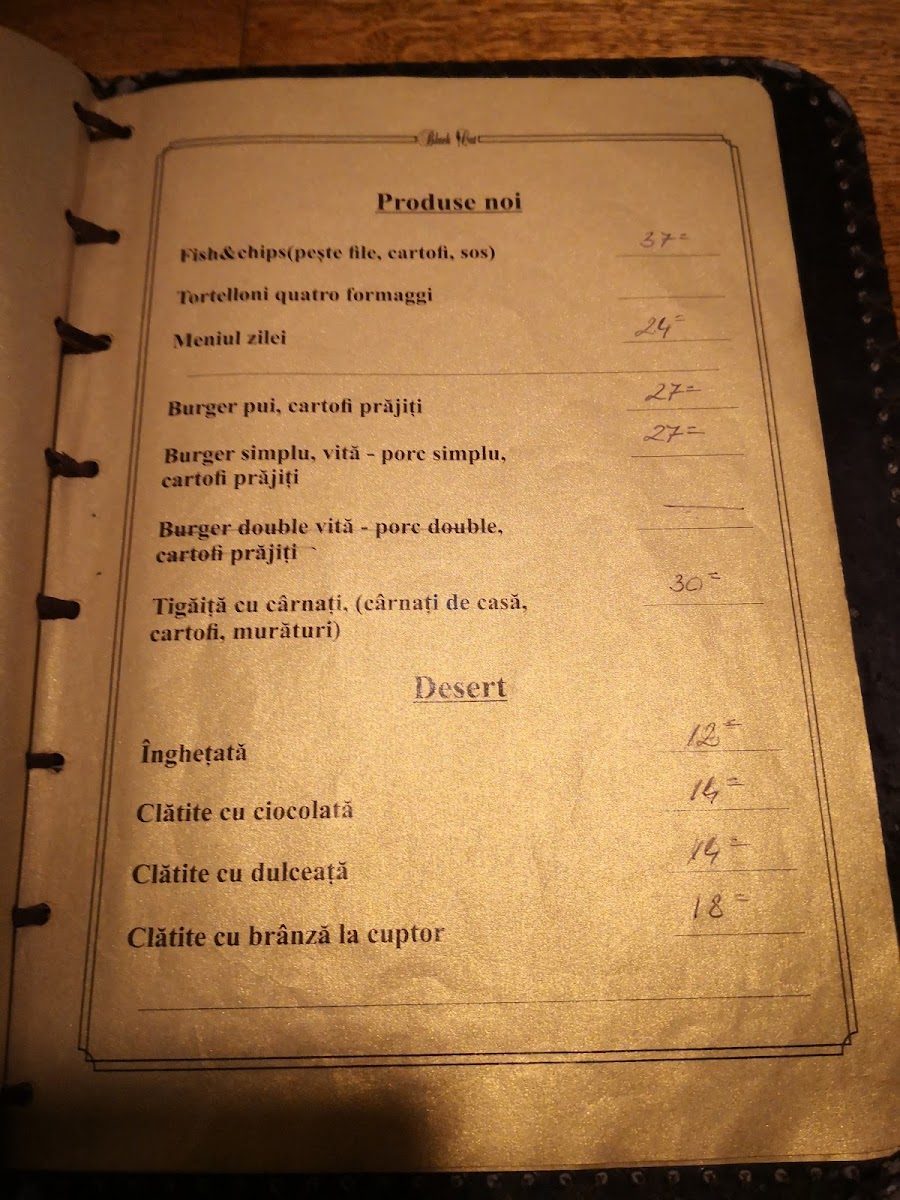 Black Cat
Produse noi
Fish&chips(pește file, cartofi, sos) 37=
Tortelloni quatro formaggi
Meniul zilei 24=
Burger pui, cartofi prăjiți 27=
Burger simplu, vită - porc simplu, 27=
cartofi prăjiți
Burger double vită - porc double,
cartofi prăjiți
Tigăiță cu cârnați, (cârnați de casă, 30=
cartofi, murături)
Desert
Înghețată 12=
Clătite cu ciocolată 14=
Clătite cu dulceață 14=
Clătite cu brânză la cuptor 18=